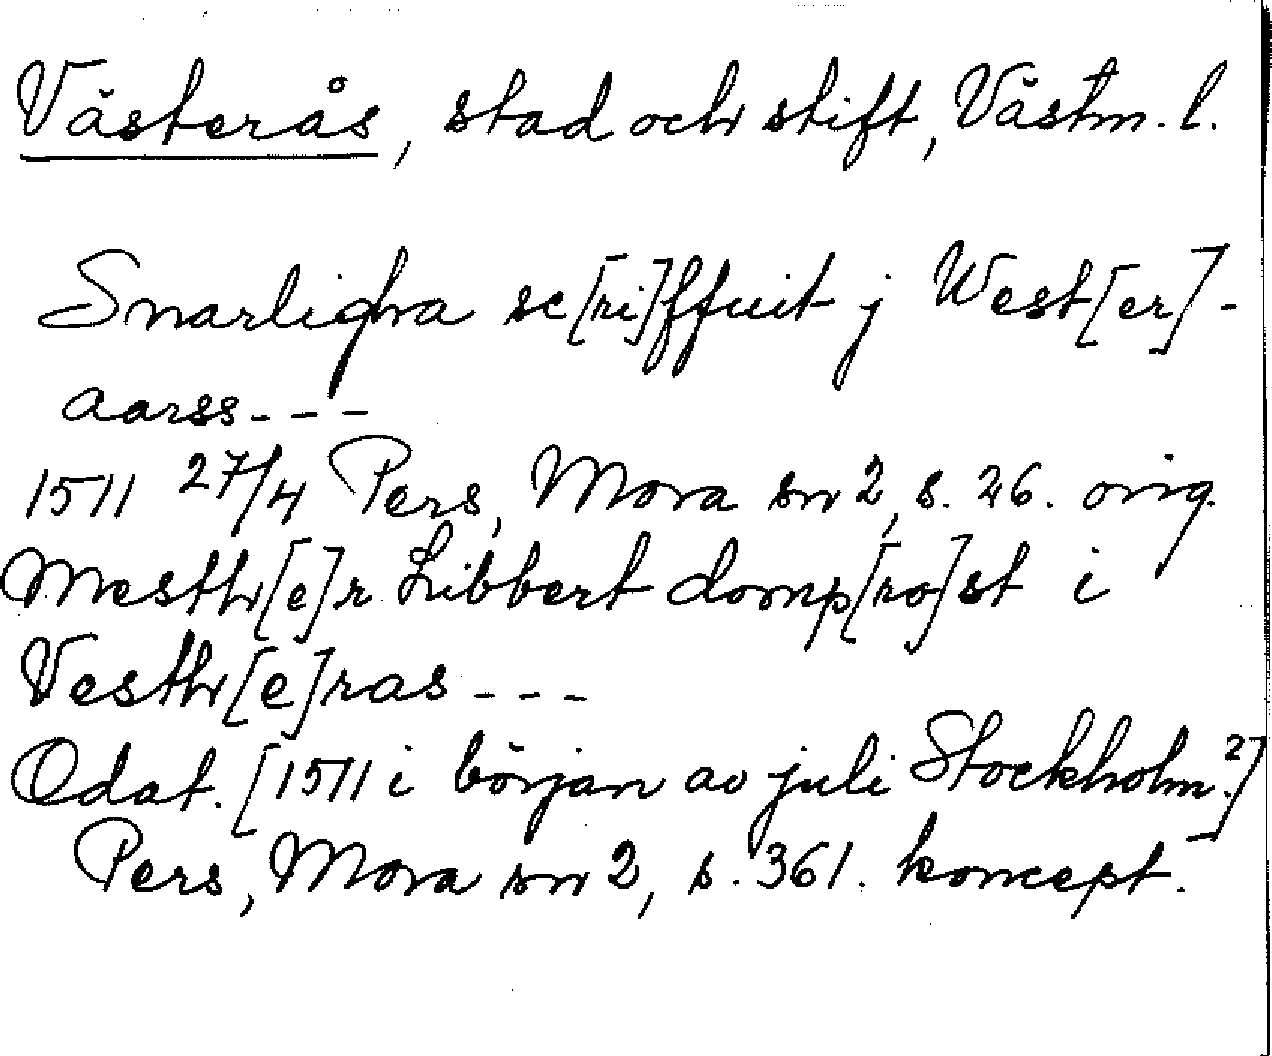 Västerås, stad och stift, Västm. l.
Snarligha sc[ri]ffuit j West[er]-
aarss---
1511 27/4 Pers, Mora sn 2, s. 26. orig.
Mesth[e]r Libbert domp[ro]st i
Vesth[e]ras---
Odat. [1511 i början av juli Stockholm.?]
Pers, Mora sn 2, s. 361. koncept.